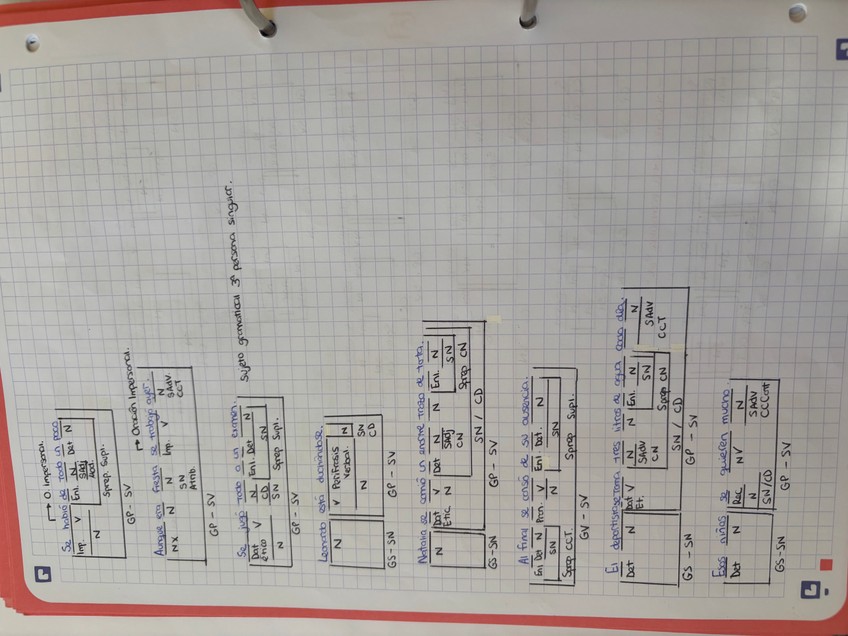 → O. Impersonal.
Se habló de todo un poco
Imp. V Enl. N Det N
N SAdj
Sprep. Supl.
GP - SV
→ Oración Impersonal.
Aunque era fiesta se trabajó ayer
Nx N N Imp. V N
SN SAdv.
Atrib. CCT
GP - SV
Se jugó todo a un examen. Sujeto gramatical 3ª persona singular.
Dat V N Enl Det N
ético CD SN
N SN Sprep Supl.
GP - SV
Leonardo está duchándose.
N V Perífrasis N
Verbal. SN
N CD
GS-SN GP - SV
Natalia se comió un enorme trozo de tarta.
N Dat V Det N N Enl. N
Etic N SAdj SN
CN Sprep CN
SN / CD
GS-SN GP - SV
Al final se cansó de su ausencia.
Enl Det N Pron. V Enl. Det. N
SN N SN
Sprep CCT. Sprep Supl.
GV - SV
El deportista se toma tres litros de agua cada día.
Det N Dat V N N Enl. N N
Et. SAdv SN SAdv
CN Sprep CN CCT
SN / CD
GS - SN GP - SV
Esos niños se quieren mucho.
Det N Rec N V N
N SAdv
SN/CD CCCant
GS-SN GP - SV